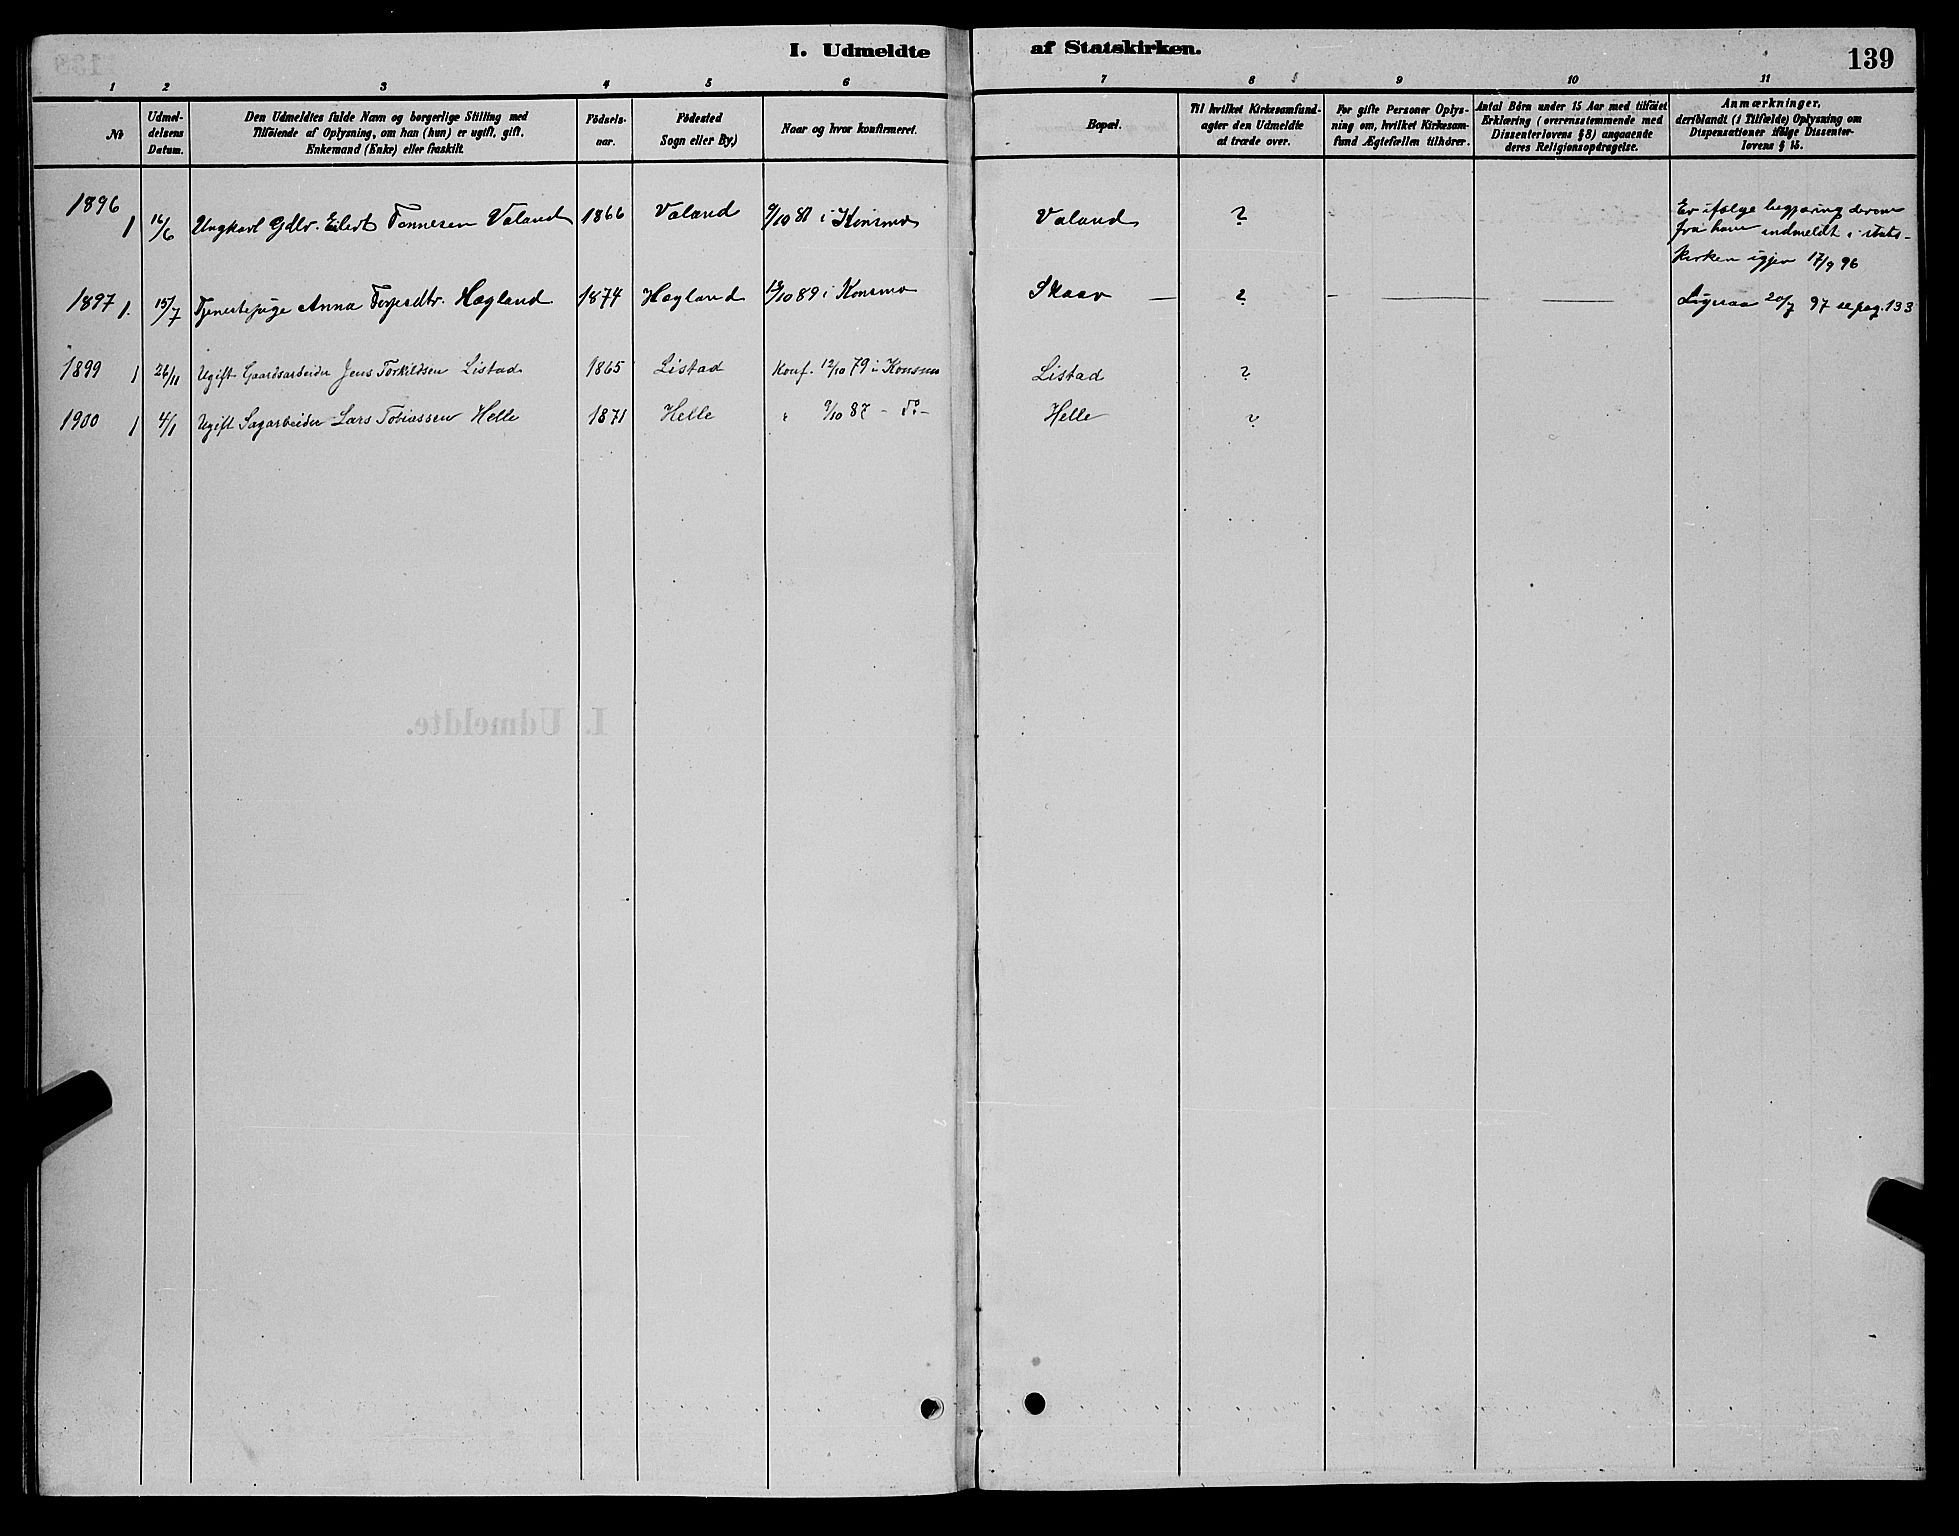 I. Udmeldte af Statskirken. 139
1 2 3 4 5 6 7 8 9 10 11
No
Udmel-
delsens
Datum.
Den Udmeldtes fulde Navn og borgerlige Stilling med
Tilføiende af Oplysning, om han (hun) er ugift, gift,
Enkemand (Enke) eller fraskilt.
Födsels-
aar.
Födested
Sogn eller By,)
Naar og hvor konfirmeret.
Bopæl.
Til hvilket Kirkesamfund-
agter den Udmeldte
at træde over.
For gifte Personer Oplys-
ning om, hvilket Kirkesam-
fund Ægtefællen tilhörer.
Antal Börn under 15 Aar med tilföiet
Erklæring (overensstemmende med
Dissenterlovens § 8) angaaende
deres Religionsopdragelse.
Anmærkninger,
deriblandt (i Tilfælde) Oplysning om
Dispensationer ifölge Dissenter-
lovens § 15.
1896 1 16/6 Ungkarl Gdbr. Eilert Tønnesen Valand 1866 Valand 9/10 81 i Konsmo Valand ? Er ifølge begjæring derom
fra ham indmeldt i stats-
kirken igjen 17/9 96
1897 1. 15/7 Tjenestepige Anna Hægland 1874 Hægland /10 89 i Konsmo Skaar — ? — — — Ligesaa 20/7 97 se pag. 133
1899 1 26/11 Ugift Gaardsarbeider Jens Torkildsen Listad 1865 Listad Konf. 12/10 79 i Konsmo Listad ?
1900 1 4/1 Ugift Sagarbeider Lars Tobiassen Helle 1871 Helle " 9/10 87 - Do - Helle ?
I. Udmeldte.